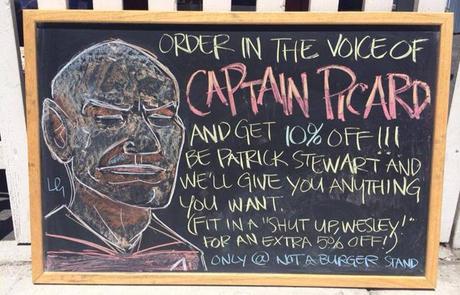 ORDER IN THE VOICE OF
CAPTAIN PICARD
AND GET 10% OFF!!!
BE PATRICK STEWART AND
WE'LL GIVE YOU ANYTHING
YOU WANT.
(FIT IN A "SHUT UP, WESLEY!"
FOR AN EXTRA 5% OFF!)
ONLY @ NOT A BURGER STAND
LG